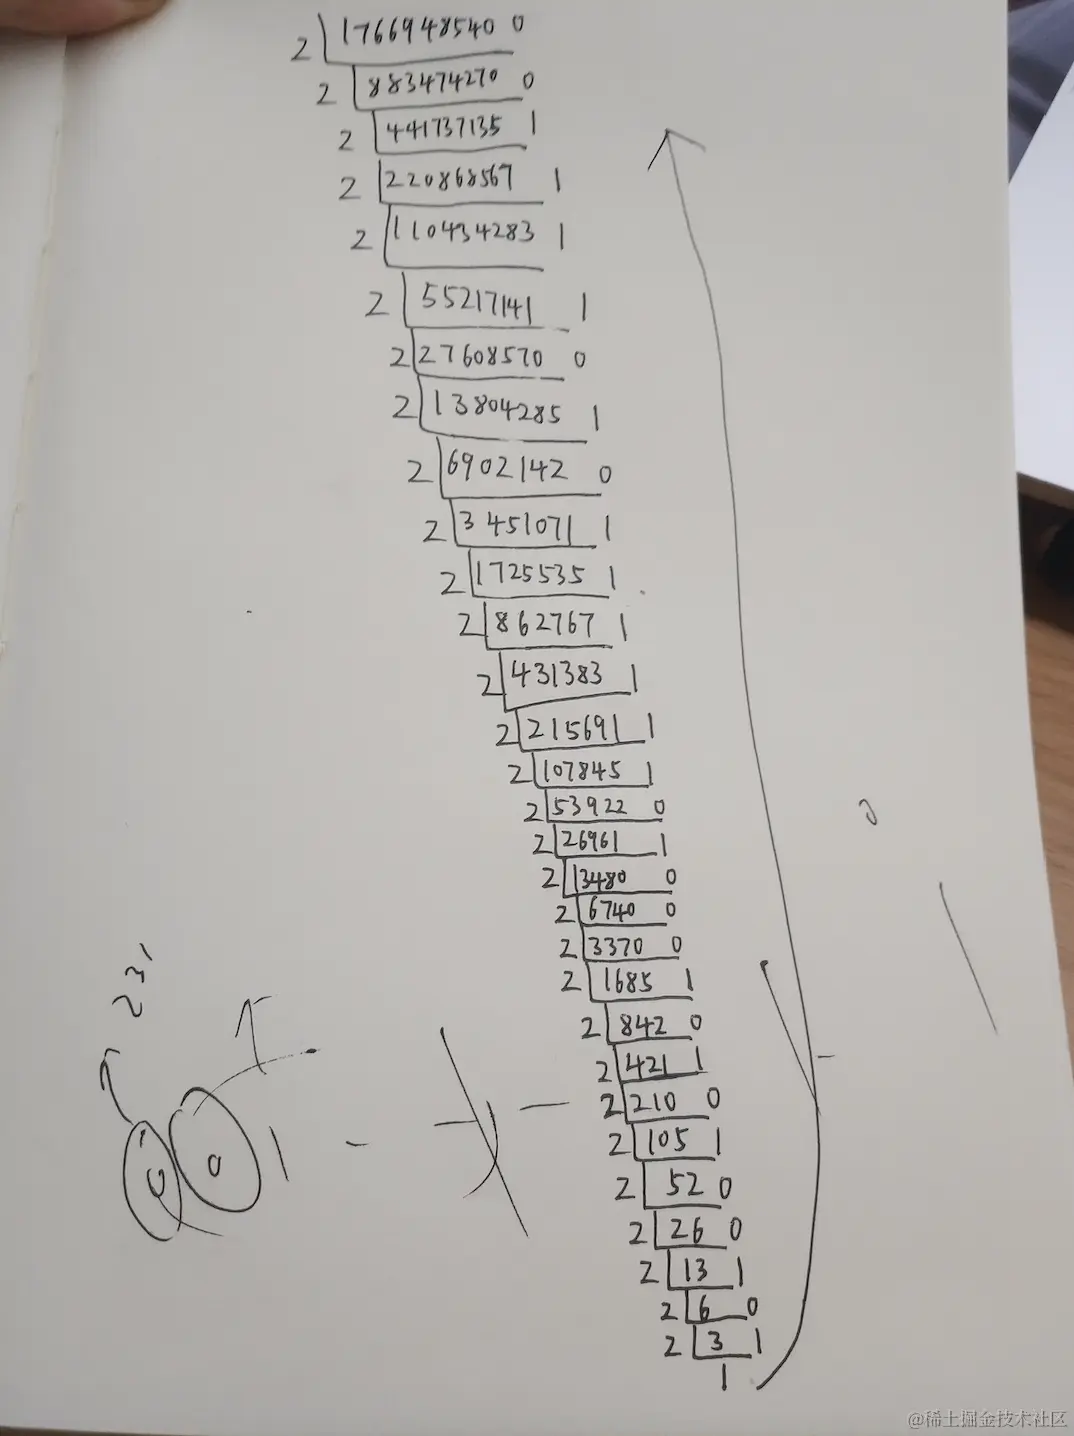 2 1766948540 0
2 883474270 0
2 441737135 1
2 220868567 1
2 110434283 1
2 55217141 1
2 27608570 0
2 13804285 1
2 6902142 0
2 3451071 1
2 1725535 1
2 862767 1
2 431383 1
2 215691 1
2 107845 1
2 53922 0
2 26961 1
2 13480 0
2 6740 0
2 3370 0
2 1685 1
2 842 0
2 421 1
2 210 0
2 105 1
2 52 0
2 26 0
2 13 1
2 6 0
2 3 1
1
231
0 0 1 -
@稀土掘金技术社区